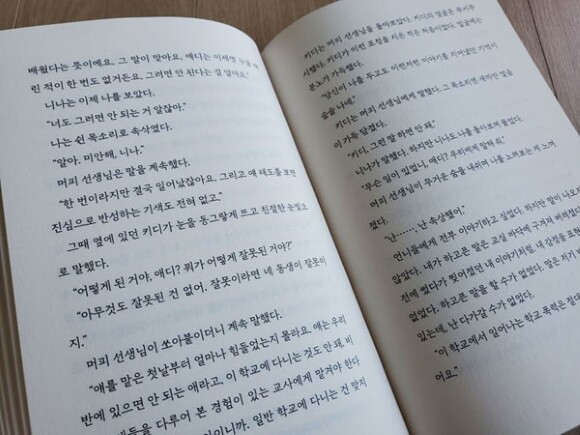 배웠다는 뜻이에요. 그 말이 맞아요. 애디는 이제껏 누굴 때
린 적이 한 번도 없거든요. 그러면 안 된다는 걸 알아요."
니나는 이제 나를 보았다.
"너도 그러면 안 되는 거 알잖아."
나는 쉰 목소리로 속삭였다.
"알아. 미안해, 니나."
머피 선생님은 말을 계속했다.
"한 번이라지만 결국 일어났잖아요. 그리고 얘 태도를 보면
진심으로 반성하는 기색도 전혀 없고."
그때 옆에 있던 키디가 눈을 동그랗게 뜨고 친절한 눈빛으
로 말했다.
"어떻게 된 거야, 애디? 뭐가 어떻게 잘못된 거야?"
"아무것도 잘못된 건 없어. 잘못이라면 네 동생이 잘못이
지."
머피 선생님이 쏘아붙이더니 계속 말했다.
"얘를 맡은 첫날부터 얼마나 힘들었는지 몰라요. 얘는 우리
반에 있으면 안 되는 애라고, 이 학교에 다니는 것도 안 돼. 비
애들을 다루어 본 경험이 있는 교사에게 맡겨야 한다
이니까. 일반 학교에 다니는 건 맞지
키디는 머피 선생님을 돌아보았다. 키디의 얼굴은
키디가 이런 표정을 지은 적은 처음이었다. 얼굴에는
분노가 가득했다.
"당신이 나를 두고도 이런저런 이야기를 지어냈던 기억이
슬슬 나네."
키디는 머피 선생님에게 말했다. 그 목소리엔
이 가득 담겼다.
"키디, 그런 말 하면 안 돼."
니나가 말했다. 하지만 니나도 나를 돌아보며 물었다.
"무슨 일이 있었니, 애디? 우리에게 말해 줘."
머피 선생님이 무거운 숨을 내쉬며 나를 노려보는 게 느껴
졌다.
"난……, 난 속상했어."
언니들에게 전부 이야기하고 싶었다. 하지만 말이 나오지
않았다. 내가 하고픈 말은 교실 바닥에 구겨져 버려졌다.
전에 썼다가 찢어졌던 내 이야기처럼. 내 감정을 표현
하고픈 말을 할 수가 없었다. 말은 저기
있는데, 난 다가갈 수가 없었다.
"이 학교에서 일어나는 학교 폭력은
어요."